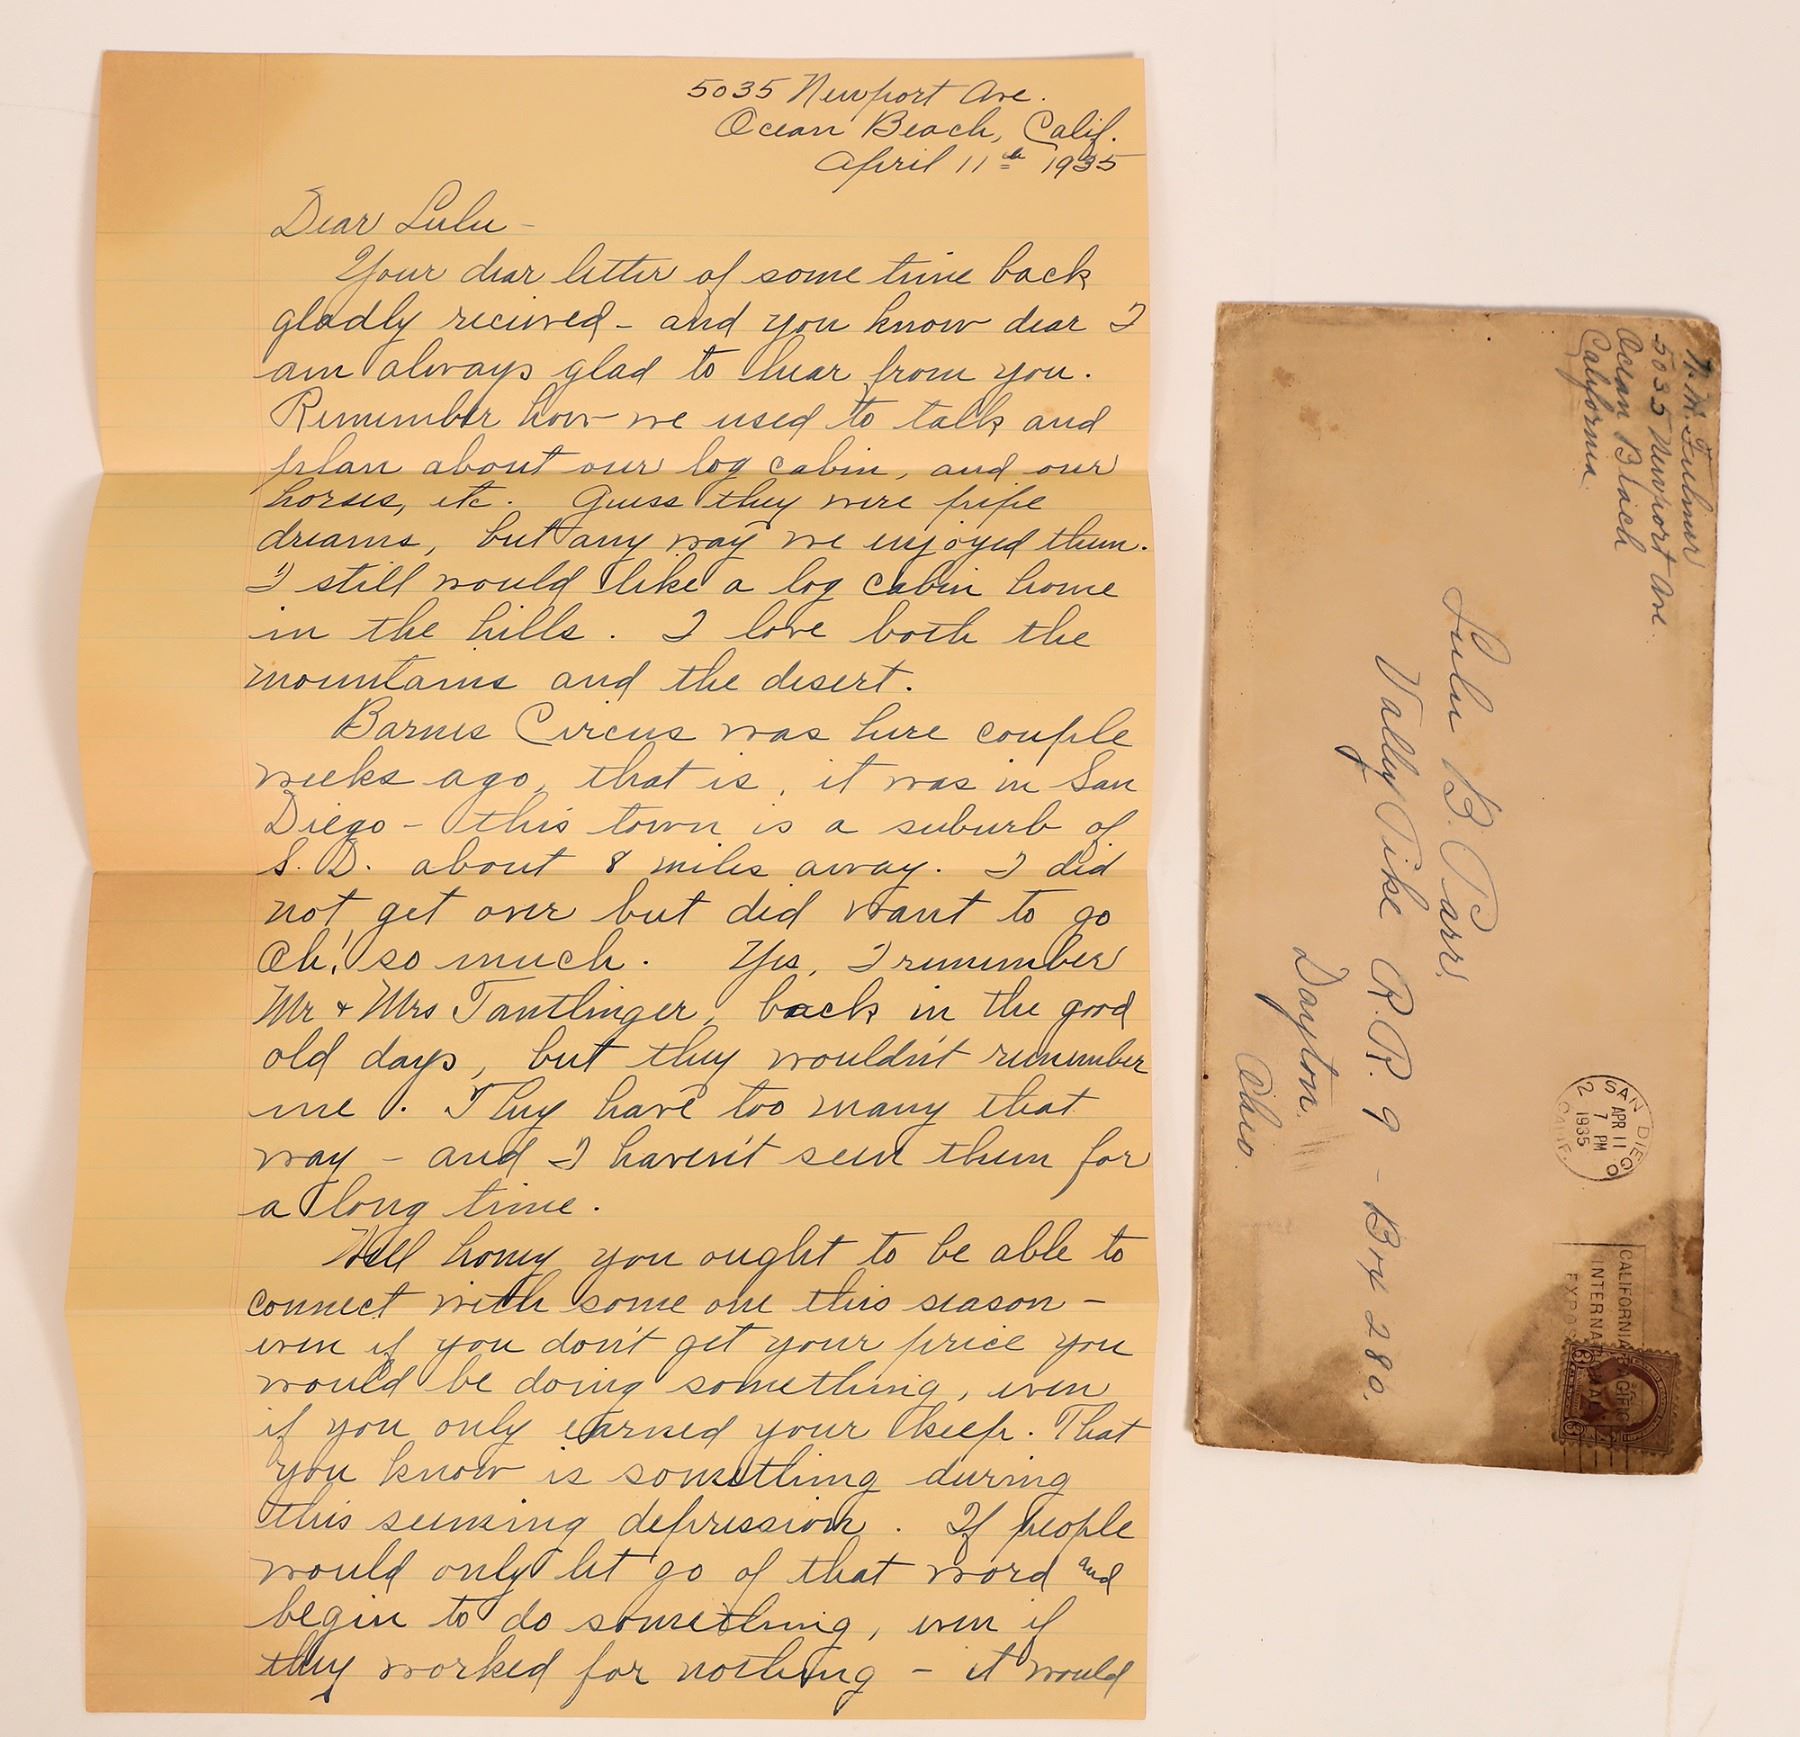 5035 Newport Ave.
Ocean Beach, Calif.
April 11th 1935
Dear Lulu -
Your dear letter of some time back
gladly recieved - and you know dear I
am always glad to hear from you.
Remember how we used to talk and
plan about our log cabin, and our
horses, etc. Guess they were pipe
dreams, but any way we enjoyed them.
I still would like a log cabin home
in the hills. I love both the
mountains and the desert.
Barnes Circus was here couple
weeks ago, that is, it was in San
Diego - this town is a suburb of
S. D. about 8 miles away. I did
not get over but did want to go
Oh! so much. Yes, I remember
Mr & Mrs Tantlinger, back in the good
old days, but they wouldn't remember
me. They have too many that
way - and I haven't seen them for
a long time.
Well honey you ought to be able to
connect with some one this season -
even if you don't get your price you
would be doing something, even
if you only earned your keep. That
you know is something during
this seeming depression. If people
would only let go of that word and
begin to do something, even if
they worked for nothing - it would
Fulmer
5035 Newport Ave.
Ocean Beach
California.
Lulu B. Parr
Vally Pike R.R. 9 - Box 280.
Dayton.
Ohio.
SAN DIEGO
APR 11
7 PM
1935
CALIF.
2
CALIFORNIA PACIFIC
INTERNATIONAL
EXPOS
3 3